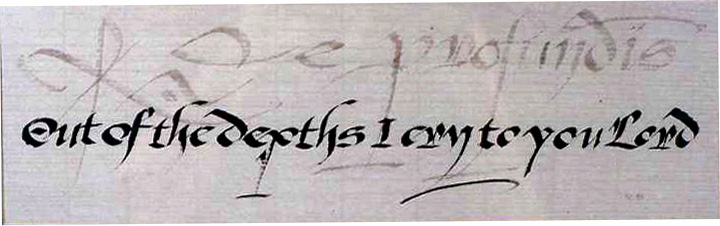 De profundis
Out of the depths I cry to you Lord